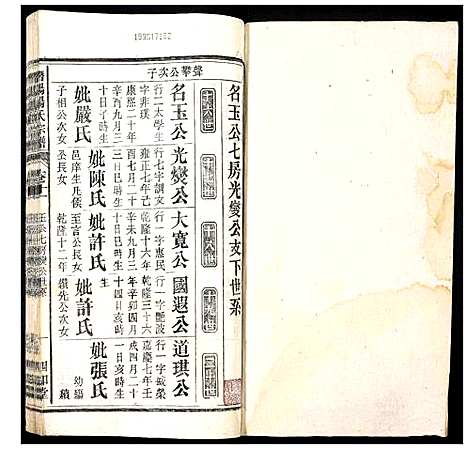 名玉公七房光燮公支下世系
聲攀公次子
名玉公 光燮公 大寬公 國遐公 道琪公
行二太學生
字非璞
康熙二十年
辛酉九月三
十日子時生
妣嚴氏
子相公次女
行七字調文
雍正七年己
酉七月二十
三日巳時生
妣陳氏
邑庠生凡儀
公長女
行一字惠民
乾隆十六年
辛未九月三
十日巳時生
妣許氏
至言公長女
行一字艷波
乾隆三十六
年辛卯四月
十四日亥時
生
妣許氏
績先公次女
行一字城榮
嘉慶七年壬
戌四月二十
一日亥時生
妣張氏